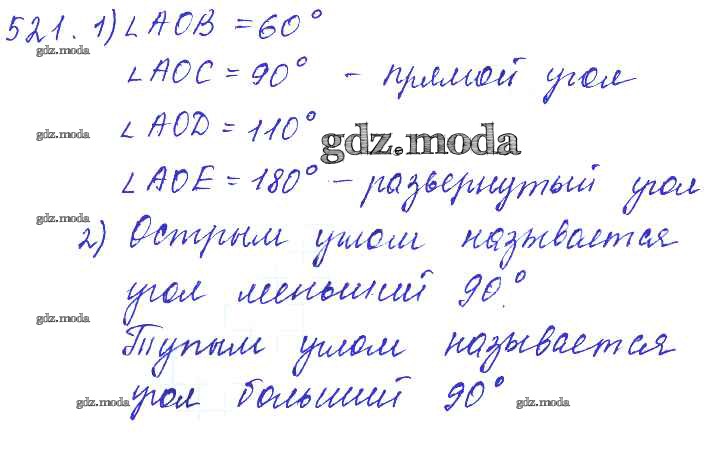 521. 1) ∠AOB = 60°
gdz.moda
∠AOC = 90° - прямой угол
gdz.moda
∠AOD = 110°
gdz.moda
∠AOE = 180° - развернутый угол
gdz.moda
2) Острым углом называется
угол меньший 90°.
gdz.moda
Тупым углом называется
угол больший 90°
gdz.moda
gdz.moda